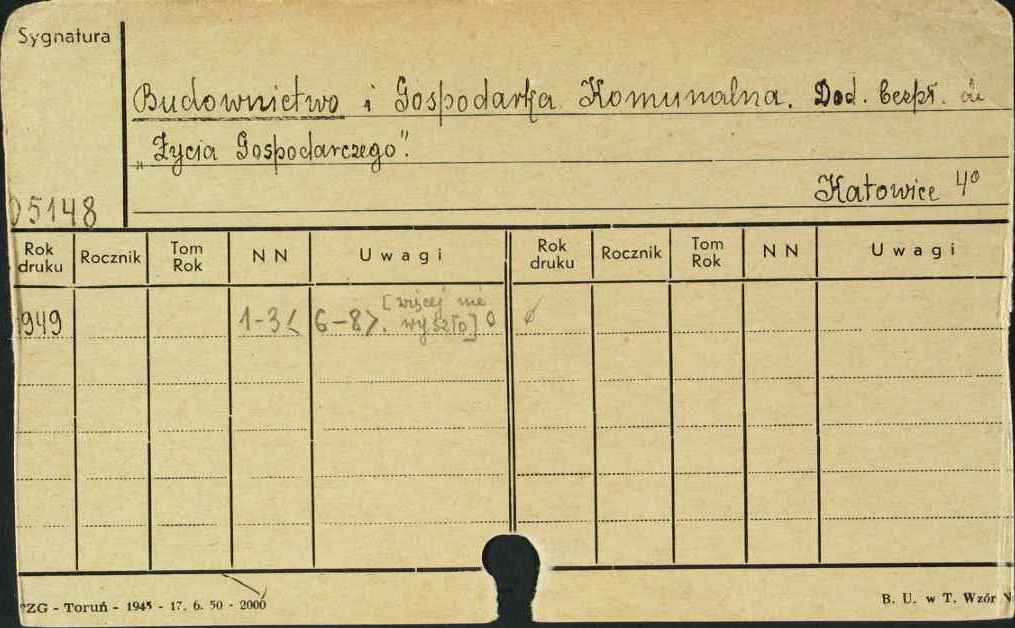 Sygnatura
Budownictwo i Gospodarka Komunalna. Dod. bezpł. do
„Życia Gospodarczego".
Katowice 4°
05148
Rok druku Rocznik Tom Rok N N Uwagi Rok druku Rocznik Tom Rok N N Uwagi
[więcej nie
949 1-3< 6-8>. wyszło]
ZG - Toruń - 1945 - 17. 6. 50 - 2000
B. U. w T. Wzór N